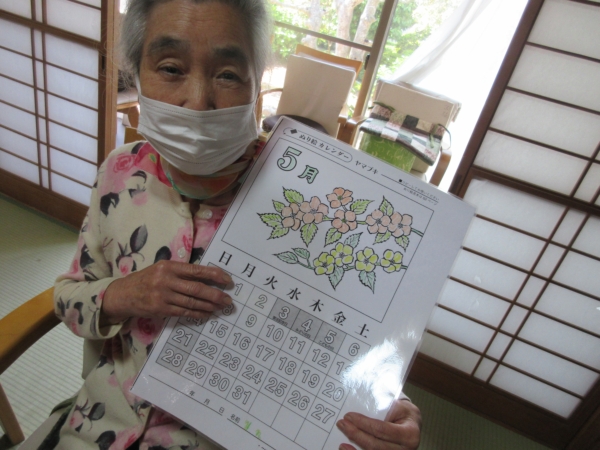 ぬり絵 カレンダー ヤマブキ
5月
日 月 火 水 木 金 土
1 2 3 4 5 6
8 9 10 11 12 13
21 15 16 17 18 19 20
28 22 23 24 25 26 27
29 30 31
年 月 日 名前